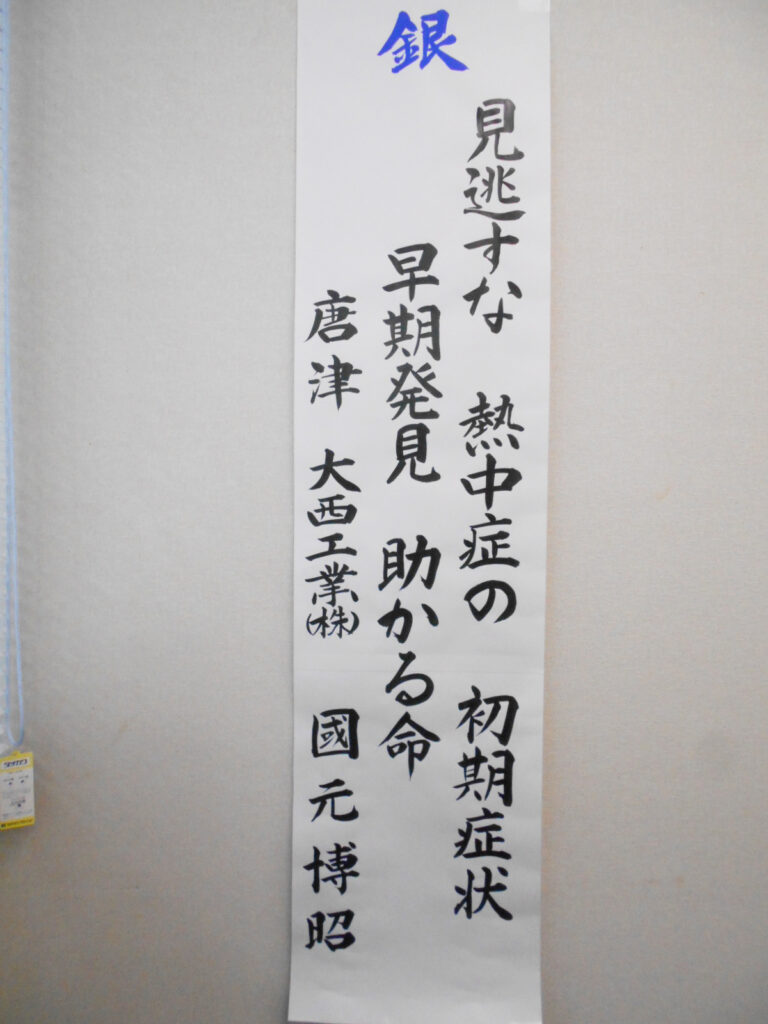 銀
見逃すな 熱中症の 初期症状
早期発見 助かる命
唐津 大西工業㈱ 國元博昭